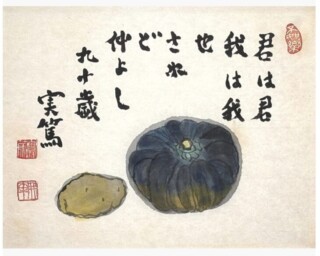 君は君
我は我
也
され
ど
仲よし
九十歳
実篤